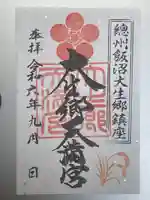 總州飯沼大生郷鎮座
大生郷天満宮
奉拝 令和六年九月 日